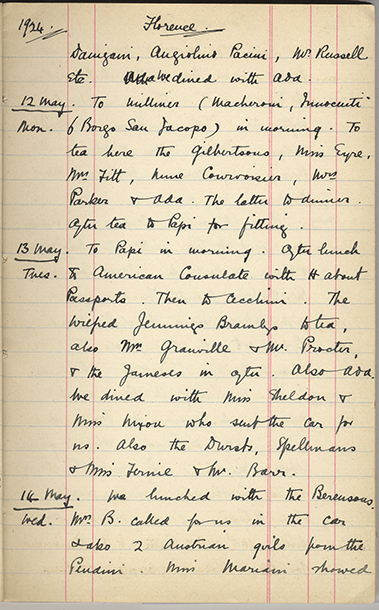 1924. Florence.
Danigani, Angiolino Pacini, Mr. Russell
etc. we dined with Ada.
12 May. To milliner (Macheroni, Innocenti
Mon. 6 Borgo San Jacopo) in morning. To
tea here the Gilbertsons, Miss Eyre,
Mrs Fitt, Mme Courvoisier, Mrs
Parker & Ada. The latter to dinner.
After tea to Papi for fitting.
13 May. To Papi in morning. After lunch
Tues. to American Consulate with H about
Passports. Then to Cecchini. The
Wilfred Jennings Bramlys to tea,
also Mrs Granville & Mr. Procter,
& the Jameses in after. Also Ada.
We dined with Miss Sheldon &
Miss Nixon who sent the car for
us. Also the Dursts, Spellmans
& Miss Fernie & Mr. Barr.
14 May. We lunched with the Berensons.
Wed. Mrs B. called for us in the car
& also 2 Austrian girls from the
Pendini. Miss Mariani showed